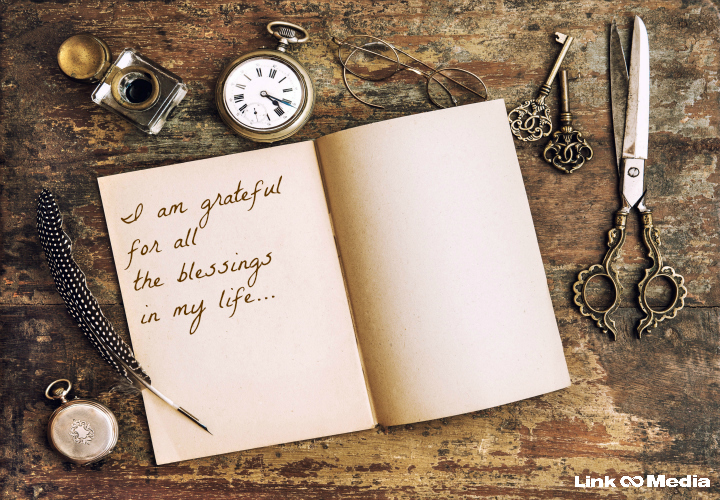 I am grateful
for all
the blessings
in my life...
Link Media